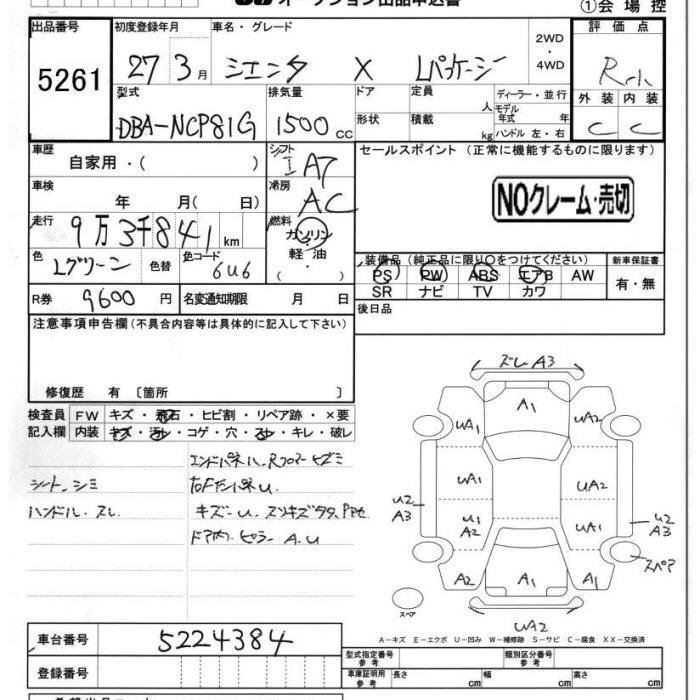 オークション出品申込書
①会場控
出品番号
5261
初度登録年月
27 3月
車名・グレード
シエンタ X Lパッケージ
2WD
・
4WD
評価点
外装 内装
C C
型式
DBA-NCP81G
排気量
1500 CC
ドア
形状
定員 人
積載 kg
ディーラー・並行
モデル
年式 年
ハンドル 左・右
車歴
自家用・( )
シフト
I A7
セールスポイント (正常に機能するものに限ります)
車検
年 月( 日)
冷房
AC
NOクレーム・売切
走行
9万3千841km
燃料
ガソリン
軽・油
( ・ )
色
Lグリーン
色替
色コード
6U6
装備品 (純正品に限り○をつけてください)
PS PW ABS エアB AW
SR ナビ TV カワ
新車保証書
有・無
R券 9600円
名変通知期限 月 日
後日品
注意事項申告欄(不具合内容等は具体的に記入して下さい)
修復歴 有 〔箇所 〕
検査員
記入欄
FW キズ・飛石・ヒビ割・リペア跡・×要
内装 キズ・汚れ・コゲ・穴・スレ・キレ・破レ
シート.シミ
ハンドル.スレ
ドア内.ピラー A.U
ズレA3
A1
UA2 UA2
UA1 UA2
U2
A3
U1
A2
UA1
U2
A3
A2 A1 A1
スペア
スペア
UA2
A-キズ E-エクボ U-凹み W-補修跡 S-サビ C-腐食 XX-交換済
車台番号
5224384
登録番号
型式指定番号
参考
類別区分番号
参考
車庫証明用
参考
長さ cm
幅 cm
高さ cm